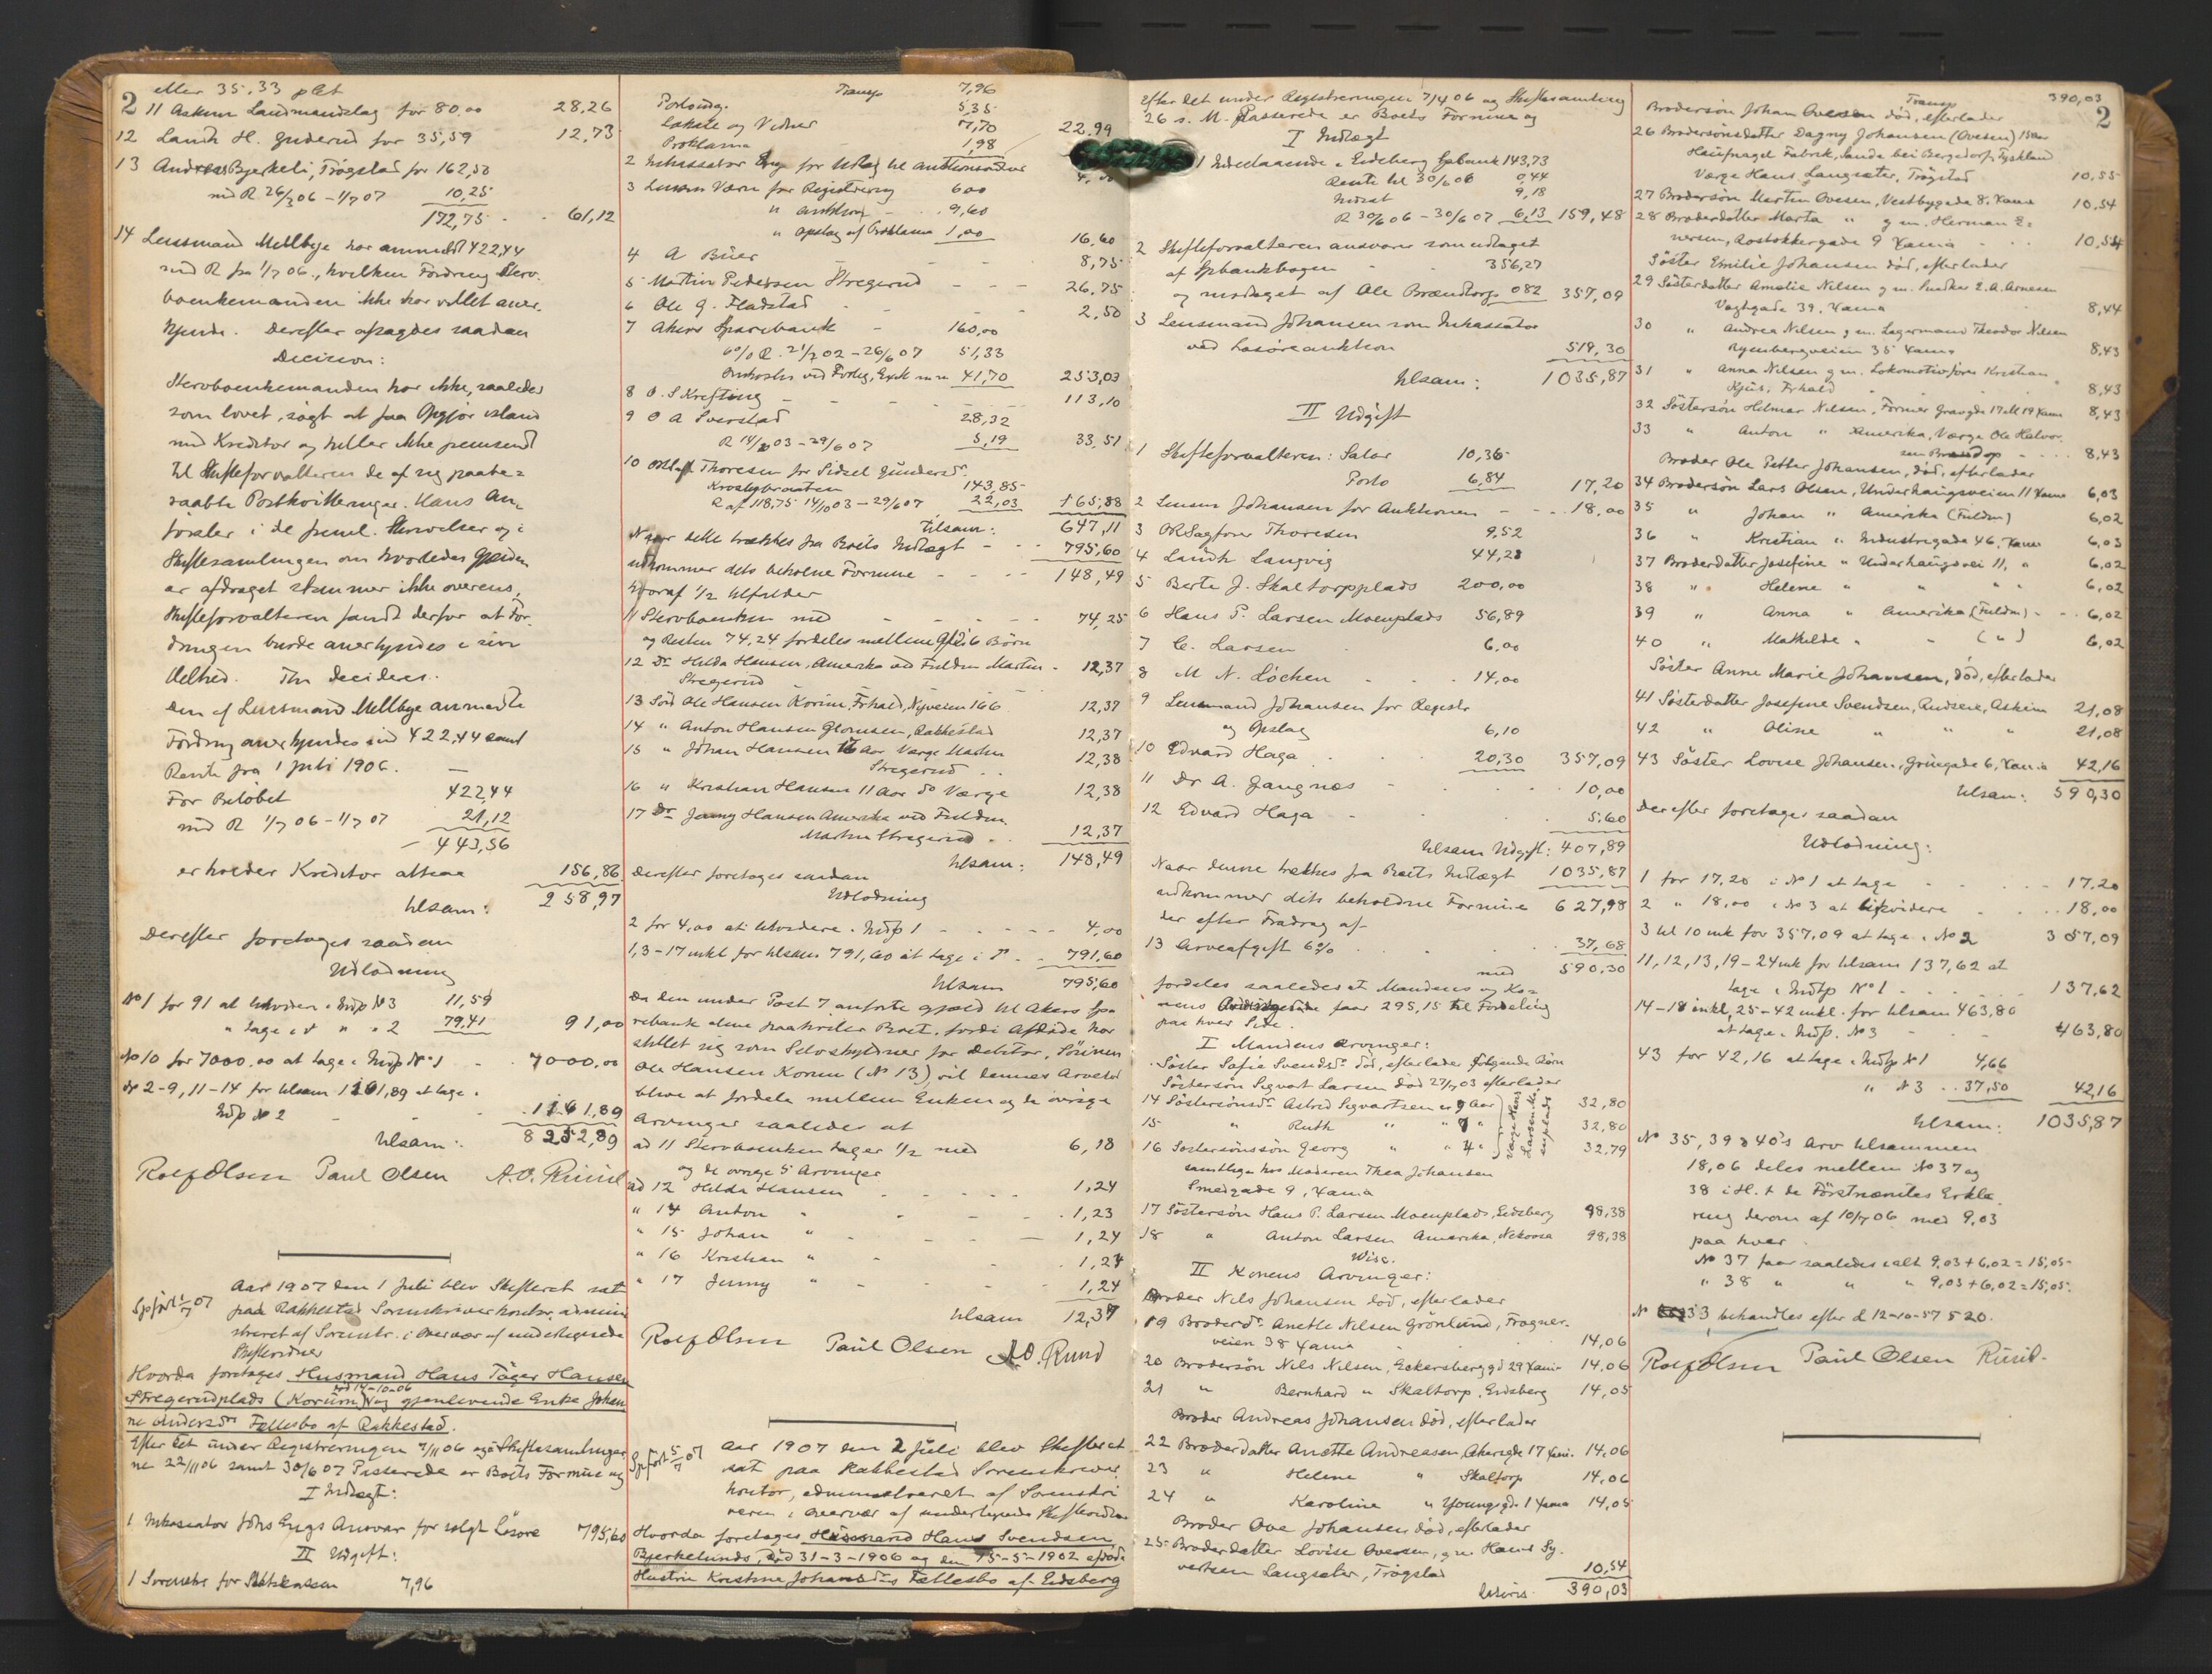 2
eller 35,33 pCt
11 Askim Landmandslag for 80,00 28,26
12 Landh H. Gudrud for 35,59 12,73
13 Andreas Bjerkeli, Trøgstad for 162,50
med R 26/3 06 – 1/7 07 10,25
172,75 - - 61,12
14 Lensmand Mellbye har anmeldt 422,44
med R fra 1/7 06., hvilken Fordring Sterv-
boenkemanden ikke har villet aner-
kjende. Derefter afsagdes saadan
Decision:
Stervboenkemanden har ikke, saaledes
som lovet, søgt at faa Opgjør istand
med Kreditor og heller ikke fremsendt
til Skifteforvalteren de af sig paabe=
raabte Postkvitteringer. Hans An-
førsler i de skrivelser og i
Skiftesamlingen om hvorledes Gjælden
er afdraget stemmer ikke overens,
Skifteforvalteren fandt derfor at For-
dringen burde anerkjendes i sin
Helhed. Thi decideres:
Den af Lensmand Mellbye anmeldte
Fordring anerkjendes med 422,44 samt
Rente fra 1 juli 1906. —
For Beløbet 422,44
med R 1/7 06 – 1/7 07 21,12
– 443,56
erholder Kreditor altsaa 156,86
tilsam: 258,97
Derefter foretages saadan
Udlodning
No 1 for 91 at likvidere i Indt No 3 11,59
" tage i do " " 2 79,41 91,00
No 10 for 7000,00 at tage i Indtp No 1 - 7000,00
No 2-9, 11-14 for tilsam 1161,89 at tage i
Indtp No 2 - - 1161,89
tilsam: 8252,89
Rolf Olsen Paul Olsen A.O. Ruud
Spført 1/7 07
Aar 1907 den 1 Juli blev Skifteret sat
paa Rakkestad Sorenskriverkontor, admini
streret af Sorenskr. i Overvær af undertegnede
Skiftevidner
Hvorda foretages Husmand Hans Tøger Hansen
død 14-10-06
Stregerudplads (Korum) og gjenlevende Enke Johan
ne Andersdrs Fællesbo af Rakkestad.
Efter det under Registreringen 7/11 06 og Skiftesamlinger
ne 22/11 06 samt 30/6 07 Passerede er Boets Formue og
I Indtægt:
1 Inkassator Johs Engs Ansvar for solgt Løsøre 795,60
II Udgift:
1 Sorenskr for 7,96
Transp 7,96
Portoudg. 5,35
Lokale og Vidner 7,70
Proklama 1,98 22,99
2 Inkassator Eng for Udlæg til Auktionsvidner 4,00
3 Lensm Værn for Registrering 6,00
" Auktion - 9,60
" Opslag af Proklama 1,00 16,60
4 A Büer - - - 8,75
5 Martin Pedersen Stregerud - - - 26,75
6 Ole G. Fladstad - - - 2,50
7 Akers Sparebank - 160,00
6% R. 21/2 02 – 26/6 07 51,33
Omkostn ved Forlig, Exek m m 41,70 253,03
8 O. S Krefting - - - 113,10
9 O A Sverstad 28,32
R 14/6 03 – 29/6 07 5,19 33,51
10 Thoresen for Sidsel Gundersdr
Krosbybraaten 143,85
R af 118,75 14/10 03 – 29/6 07 22,03 165,88
tilsam: 647,11
Naar dette trækkes fra Boets Indtægt - - 795,60
udkommer dets beholdne Formue - - - 148,49
hvoraf 1/2 tilfalder
11 Stervboenken med - - - 74,25
og Resten 74,24 fordeles mellem 6 Børn
12 Dr Hilda Hansen, Amerika ved Fuldm Martin - 12,37
Stregerud
13 Søn Ole Hansen Korum, Frhald, Nyveien 166 12,37
14 " Anton Hansen Glomsen, Rakkestad 12,37
15 " Johan Hansen 16 aar Værge Martin
Stregerud - - 12,38
16 " Kristian Hansen 11 Aar do Værge 12,38
17 Dr Jenny Hansen Amerika ved Fuldm
Martin Stregerud - 12,37
tilsam: 148,49
Derefter foretages saadan
Udlodning
2 for 4,00 at likvidere i Indtp 1 - - - 4,00
1, 3-17 inkl for tilsam 791,60 at tage i do - 791,60
tilsam 795,60
Da den under Post 7 anførte gjæld til Akers Spa
rebank alene paahviler Boet, fordi Afdøde har
stillet sig som Selvskyldner for debitor, Sønnen
Ole Hansen Korum (No 13), vil dennes Arvelod
blive at fordele mellem Enken og de øvrige
Arvinger saaledes at
ad 11 Stervboenken tager 1/2 med 6,18
og de øvrige 5 Arvinger
ad 12 Hilda Hansen - - - 1,24
" 14 Anton " - - - 1,23
" 15 Johan " - - - 1,24
" 16 Kristian " - - 1,24
" 17 Jenny " - - - 1,24
tilsam 12,37
Rolf Olsen Paul Olsen A.O. Ruud
Spført 5/7 07
Aar 1907 den 2 Juli blev Skifteret
sat paa Rakkestad Sorenskriver
kontor, administreret af Sorenskri
veren i Overvær af undertegnede Skiftevidner
Hvorda foretages Husmand Hans Svendsen
Bjerkelunds, død 31-3-1906 og den 15-5-1902 afdøde
Hustru Kristine Johansdrs Fællesbo af Eidsberg
Efter det under Registreringen 7/4 06 og Skiftesamling
26 s. M. Passerede er Boets Formue og
I Indtægt
1 Indestaaende i Eidsberg Spbank 143,73
Rente til 30/6 06 0,44
Indsat 9,18
R 30/6 06 – 30/6 07 6,13 159,48
2 Skifteforvalteren ansvarer som udtaget
af Spbankbogen - - 356,27
og modtaget af Ole Brandtorp 0,82 357,09
3 Lensmand Johansen som Inkassator
ved Løsøreauktion 519,30
tilsam: 1035,87
II Udgift
1 Skifteforvalteren: Salær 10,36
Porto 6,84 17,20
2 Lensm Johansen for Auktionen - - 18,00
3 ORSagfører Thoresen 9,52
4 Landh Langvig 44,28
5 Berte J. Skaltorpplads 200,00
6 Hans P. Larsen Moenplads 56,89
7 C. Larsen 6,00
8 M N. Løchen - - 14,00
9 Lensmand Johansen for Registr
og Opslag 6,10
10 Edvard Haga - - 20,30 357,09
11 Dr A. Jangnæs - - - 10,00
12 Edvard Haga - - - 5,60
tilsam Udgift: 407,89
Naar denne trækkes fra Boets Indtægt 1035,87
udkommer dets beholdne Formue 627,98
der efter Fradrag af
13 Arveafgift 6% - - 37,68
med 590,30
fordeles saaledes at Mandens og Ko-
nens Arvinger faar 295,15 til Fordeling
paa hver Side.
I Mandens Arvinger:
Søster Sofie Svendsdr død, efterlader følgende Børn
Søstersøn Sigvart Larsen død 27/7 03 efterlader
14 Søstersønsdr Astrid Sigvartsen er 9 Aar 32,80
15 " Ruth " " 7 " 32,80
16 Søstersønssøn Georg " " 4 " 32,79
Værge Hans Larsen Moenplads
samtlige hos Moderen Thea Johansen
Smedgade 9, Xania
17 Søstersøn Hans P. Larsen Moenplads, Eidsberg 98,38
18 " Anton Larsen Amerika, Nekoosa 98,38
Wisc.
II Konens Arvinger:
Broder Nils Johansen død, efterlader
19 Broderdr Anette Nilsen Grønlund, Frogner-
veien 38 Xania - - 14,06
20 Brodersøn Nils Nilsen, Eckersberg gd 29 Xania 14,06
21 " Bernhard " Skaltorp, Eidsberg 14,05
Broder Andreas Johansen død, efterlader
22 Broderdatter Anette Andreasen, Akersgde 17 Xani. 14,06
23 " Helene " Skaltorp 14,06
24 " Karoline " Youngsgd. 1 Xania 14,05
Broder Ove Johansen død, efterlader
25 Broderdatter Lovise Ovesen, gm Hans Sy-
vertsen Langsæter, Trøgstad 10,54
390,03
2
Transp 390,03
Brodersøn Johan Ovesen død, efterlader
26 Brodersønsdatter Dagny Johansen (Ovesen) 15 aar
Haufnagel Fabrik, Sande bei Bergedorf, Tyskland
Værge Hans Langsæter, Trøgstad 10,55
27 Brodersøn Martin Ovesen, Vestbygade 8. Xania 10,54
28 Broderdatter Marta " gm. Herman E-
nersen, Rostokkergade 9 Xania - - 10,54
Søster Emilie Johansen død, efterlader
29 Søsterdatter Amalie Nilsen gm. Snedker E. A. Arnesen
Vogtgade 39, Xania 8,44
30 " Andrea Nilsen gm. Lagermand Theodor Nilsen
Ryenbergveien 35 Xania 8,43
31 " Anna Nilsen gm. Lokomotivfører Kristian
Kjus, Frhald 8,43
32 Søstersøn Hilmar Nilsen, Former Gravgde 17 all 19 Xania 8,43
33 " Anton " Amerika, Værge Ole Halvor-
sen Brandtop - - 8,43
Broder Ole Petter Johansen, død, efterlader
34 Brodersøn Lars Olsen, Underhaugsveien 11 Xania 6,03
35 " Johan " Amerika (Fuldm) 6,02
36 " Kristian " Industrigade 46, Xania 6,03
37 Broderdatter Josefine " Underhaugsvei 11, " 6,02
38 " Helene " " " " 6,02
39 " Anna " Amerika (Fuldm) - - 6,02
40 " Mathilde " - ( " ) 6,02
Søster Anne Marie Johansen, død, efterlader
41 Søsterdatter Josefine Svendsen, Askim 21,08
42 " Oline " " " 21,08
43 Søster Lovise Johansen, Grüngade 6, Xania 42,16
tilsam: 590,30
Derefter foretages saadan
Udlodning:
1 for 17,20 i No 1 at tage - - - 17,20
2 " 18,00 i No 3 at likvidere - - 18,00
3 til 10 ink for 357,09 at tage i No 2 357,09
11, 12, 13, 19-24 ink for tilsam 137,62 at
tage i Indtp No 1 - - - 137,62
14-18 inkl, 25-42 inkl. for tilsam 463,80
at tage i Indtp. No 3 - - 463,80
43 for 42,16 at tage i Indtp No 1 4,66
" No 3 - 37,50 42,16
tilsam: 1035,87
No 35, 39 & 40's Arv tilsammen
18,06 deles mellem No 37 og
38 i H. t de Førstnævntes Erklæ
ring derom af 10/7 06 med 9,03
paa hver
No 37 faar saaledes ialt 9,03 + 6,02 = 15,05
" 38 " " " 9,03 + 6,02 = 15,05.
No 33 behandles efter L 12-10-57 § 20.
Rolf Olsen Paul Olsen Ruud.